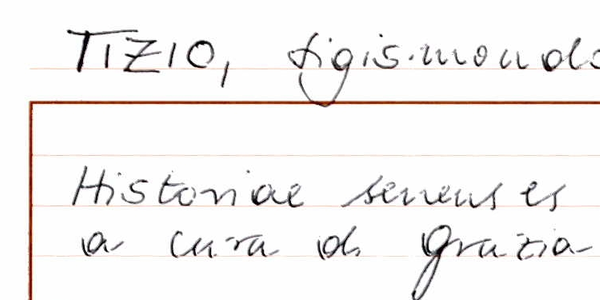 TIZIO, Sigismondo
Historiae senenses
a cura di grazia